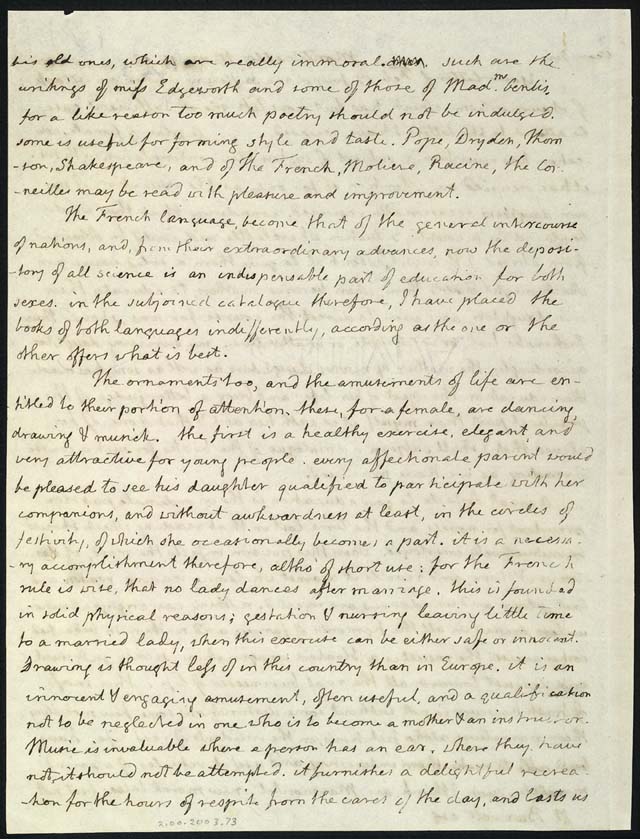 his old ones, which are really immoral. such are the
writings of miss Edgeworth and some of those of Mad.me Genlis.
for a like reason too much poetry should not be indulged.
some is useful for forming style and taste. Pope, Dryden, Thom
-son, Shakespeare, and of the French, Moliere, Racine, the Cor-
-neilles may be read with pleasure and improvement.
The French language, become that of the general intercourse
of nations, and, from their extraordinary advances, now the deposi-
-tory of all science is an indispensable part of education for both
sexes. in the subjoined catalogue therefore, I have placed the
books of both languages indifferently, according as the one or the
other offers what is best.
The ornaments too, and the amusements of life are en-
-titled to their portion of attention. these, for a female, are dancing,
drawing & musick. the first is a healthy exercise, elegant and
very attractive for young people. every affectionate parent would
be pleased to see his daughter qualified to participate with her
companions, and without awkwardness at least, in the circles of
festivity, of which she occasionally becomes a part. it is a necessa-
-ry accomplishment therefore, altho' of short use; for the French
rule is wise, that no lady dances after marriage. this is founded
in solid physical reasons; gestation & nursing leaving little time
to a married lady, when this exercise can be either safe or innocent.
Drawing is thought less of in this country than in Europe. it is an
innocent & engaging amusement, often useful, and a qualification
not to be neglected in one who is to become a mother & an instructor.
Music is invaluable where a person has an ear. where they have
not, it should not be attempted. it furnishes a delightful recrea-
-tion for the hours of respite from the cares of the day, and lasts us
2.00-2003.73